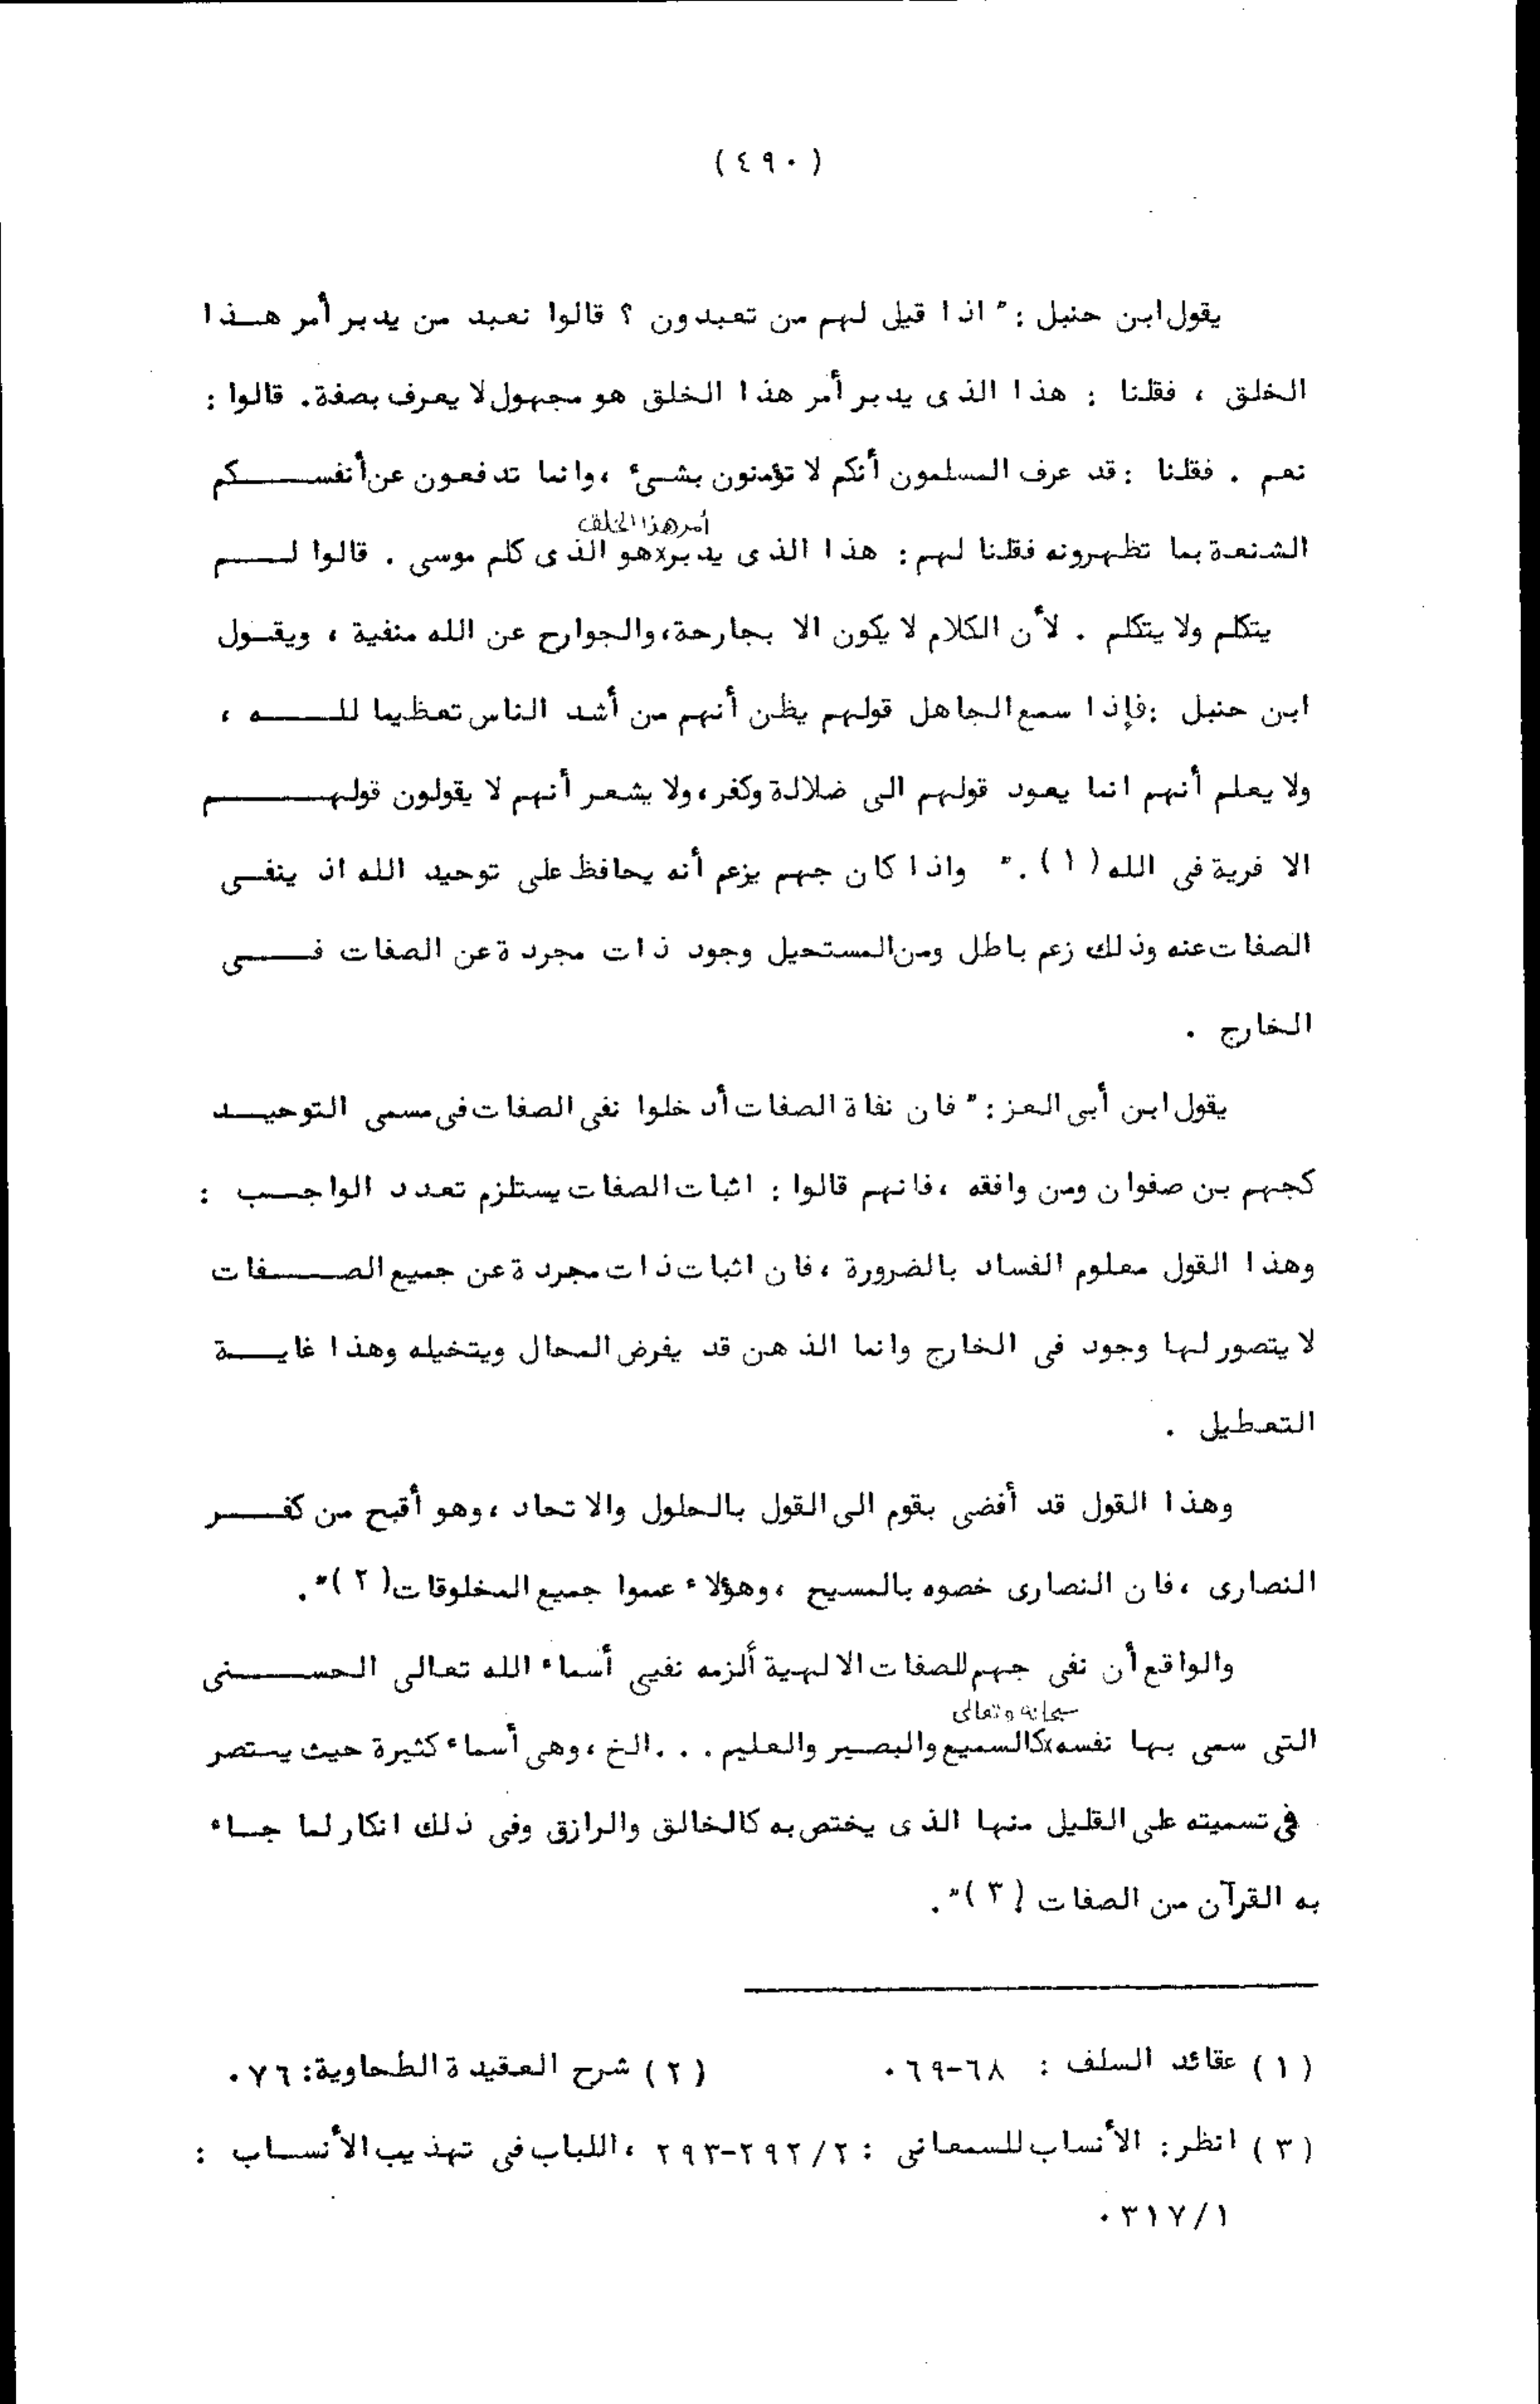 ( ٤٩٠ )
يقول ابن حنبل : " اذا قيل لهم من تعبدون ؟ قالوا نعبد من يدبر أمر هـــذا
الخلق ، فقلنا : هذا الذى يدبر أمر هذا الخلق هو مجهول لا يعرف بصفة. قالوا :
نعم . فقلنا : قد عرف المسلمون أنكم لا تؤمنون بشىء ، وانما تدفعون عن أنفســــكم
أمر هذا الخلق
الشنعة بما تظهرونه فقلنا لهم : هذا الذى يدبر×هو الذى كلم موسى . قالوا لــــم
يتكلم ولا يتكلم . لأن الكلام لا يكون الا بجارحة، والجوارح عن الله منفية ، ويقــول
ابن حنبل : فإذا سمع الجاهل قولهم يظن أنهم من أشد الناس تعظيما للــــه ،
ولا يعلم أنهم انما يعود قولهم الى ضلالة وكفر، ولا يشعر أنهم لا يقولون قولهــــم
الا فرية فى الله (١) . " واذا كان جهم يزعم أنه يحافظ على توحيد الله اذ ينفــى
الصفات عنه وذلك زعم باطل ومن المستحيل وجود ذات مجردة عن الصفات فــــى
الخارج .
يقول ابن أبى العز : " فان نفاة الصفات أدخلوا نفى الصفات فى مسمى التوحيــد
كجهم بن صفوان ومن وافقه ، فانهم قالوا : اثبات الصفات يستلزم تعدد الواجــب :
وهذا القول معلوم الفساد بالضرورة ، فان اثبات ذات مجردة عن جميع الصــــفات
لا يتصور لها وجود فى الخارج وانما الذهن قد يفرض المحال ويتخيله وهذا غايــــة
التعطيل .
وهذا القول قد أفضى بقوم الى القول بالحلول والاتحاد ، وهو أقبح من كفــــر
النصارى ، فان النصارى خصوه بالمسيح ، وهؤلاء عموا جميع المخلوقات (٢) " .
والواقع أن نفى جهم للصفات الالهية ألزمه نفيى أسماء الله تعالى الحســــنى
سبحانه وتعالى
التى سمى بها نفسه×كالسميع والبصير والعليم . . . الخ ، وهى أسماء كثيرة حيث يستصر
فى تسميته على القليل منها الذى يختص به كالخالق والرازق وفى ذلك انكار لما جــاء
به القرآن من الصفات (٣) " .
(١) عقائد السلف : ٦٨-٦٩ .
(٢) شرح العقيدة الطحاوية : ٧٦ .
(٣) انظر : الأنساب للسمعانى : ٢٩٢/٢-٢٩٣ ، اللباب فى تهذيب الأنســاب :
٣١٧/١ .